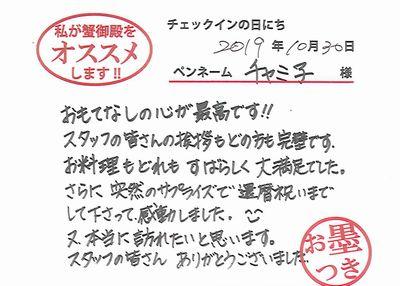 私が蟹御殿を
オススメ
します!!
チェックインの日にち
2019年10月30日
ペンネーム チャミ子 様
おもてなしの心が最高です!!
スタッフの皆さんの挨拶もどの方も完璧です。
お料理もどれもすばらしく大満足でした。
さらに突然のサプライズで還暦祝いまで
して下さって、感動しました。
又、本当に訪れたいと思います。
スタッフの皆さん ありがとうございました。
お墨
つき